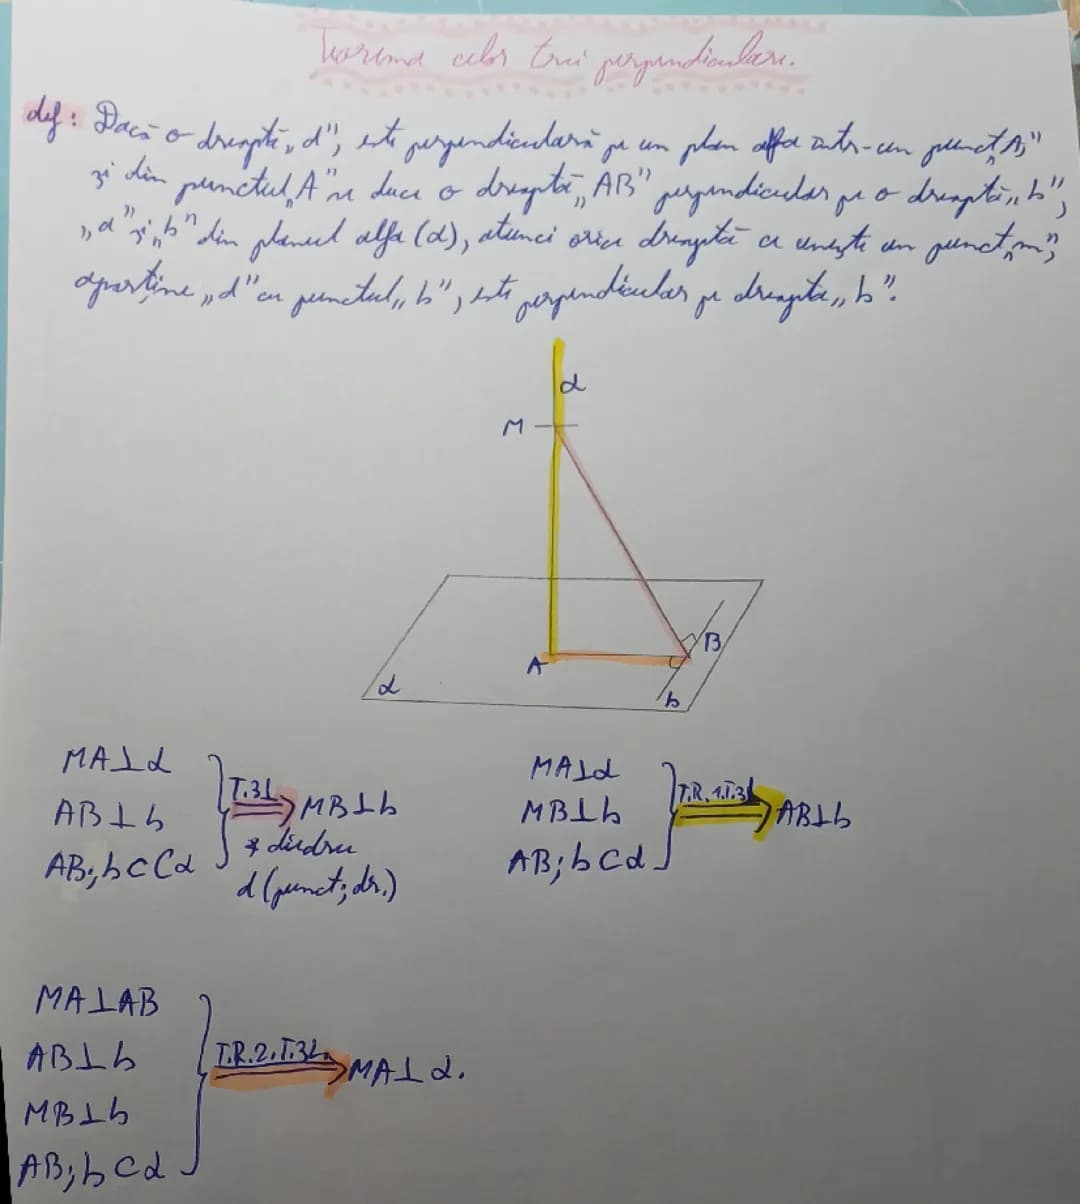 Teorema celor trei perpendiculare.
def: Dacă o dreaptă „d", este perpendiculară pe un plan alfa într-un punct „A"
și din punctul „A" se duce o dreaptă „AB" perpendicular pe o dreaptă „b",
„a" și „b" din planul alfa (α), atunci orice dreaptă ce unește un punct „m",
aparține „d" cu punctul „b", este perpendicular pe dreapta „b".
d
M
A
B
α
b
MA⊥α
AB⊥b
AB;b⊂Cα
T.3⊥
MB⊥b
* diedru
d (punct; dr.)
MA⊥α
MB⊥b
AB;b⊂α
T.R.1.T.3⊥
AB⊥b
MA⊥AB
AB⊥b
MB⊥b
AB;b⊂α
T.R.2.T.3⊥
MA⊥α.